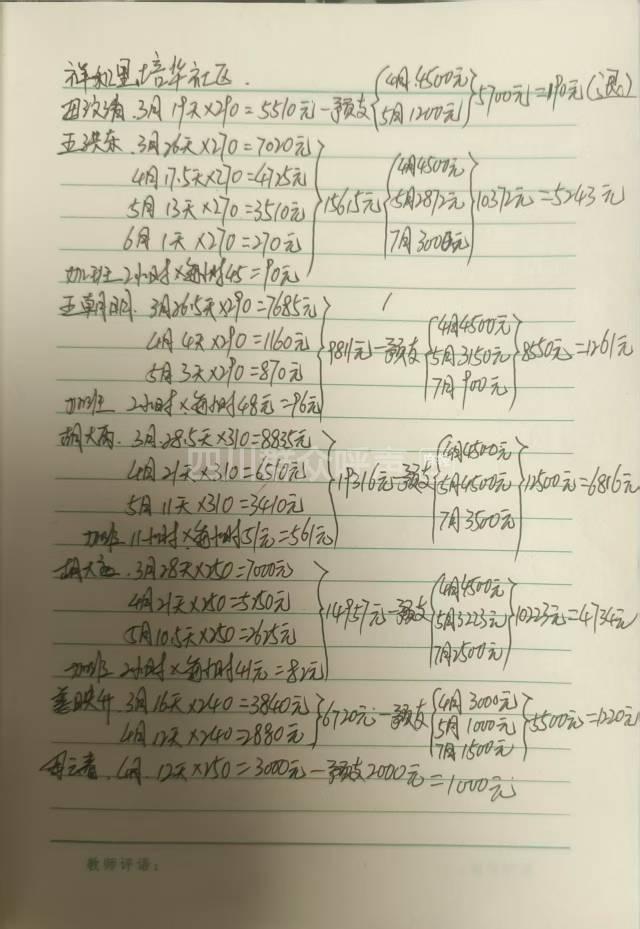 祥和里培华社区.
田汝清.3月19天×290=5510元-预支{4月4500元 5月1200元}5700元=190元(退)
王洪东.3月26天×270=7020元
4月17.5天×270=4725元
5月13天×270=3510元
6月1天×270=270元
加班2小时×每小时45=90元
}15615元{4月4500元 5月2872元 7月3000元}10372元=5243元
王朝明.3月26.5天×290=7685元
4月4天×290=1160元
5月3天×290=870元
加班2小时×每小时48元=96元
}9811元-预支{4月4500元 5月3150元 7月900元}8550元=1261元
胡大两.3月28.5天×310=8835元
4月21天×310=6510元
5月11天×310=3410元
加班11小时×每小时51元=561元
}19316元-预支{4月4500元 5月4500元 7月3500元}12500元=6816元
胡大.3月28天×250=7000元
4月21天×250=5250元
5月10.5天×250=2625元
加班2小时×每小时41元=82元
}14957元-预支{4月4500元 5月3223元 7月2500元}10223元=4734元
映.3月16天×240=3840元
4月12天×240=2880元
}6720元-预支{4月3000元 5月1000元 7月1500元}5500元=1220元
4月.12天×250=3000元-预支2000元=1000元
教师评语:
四川群众呼声